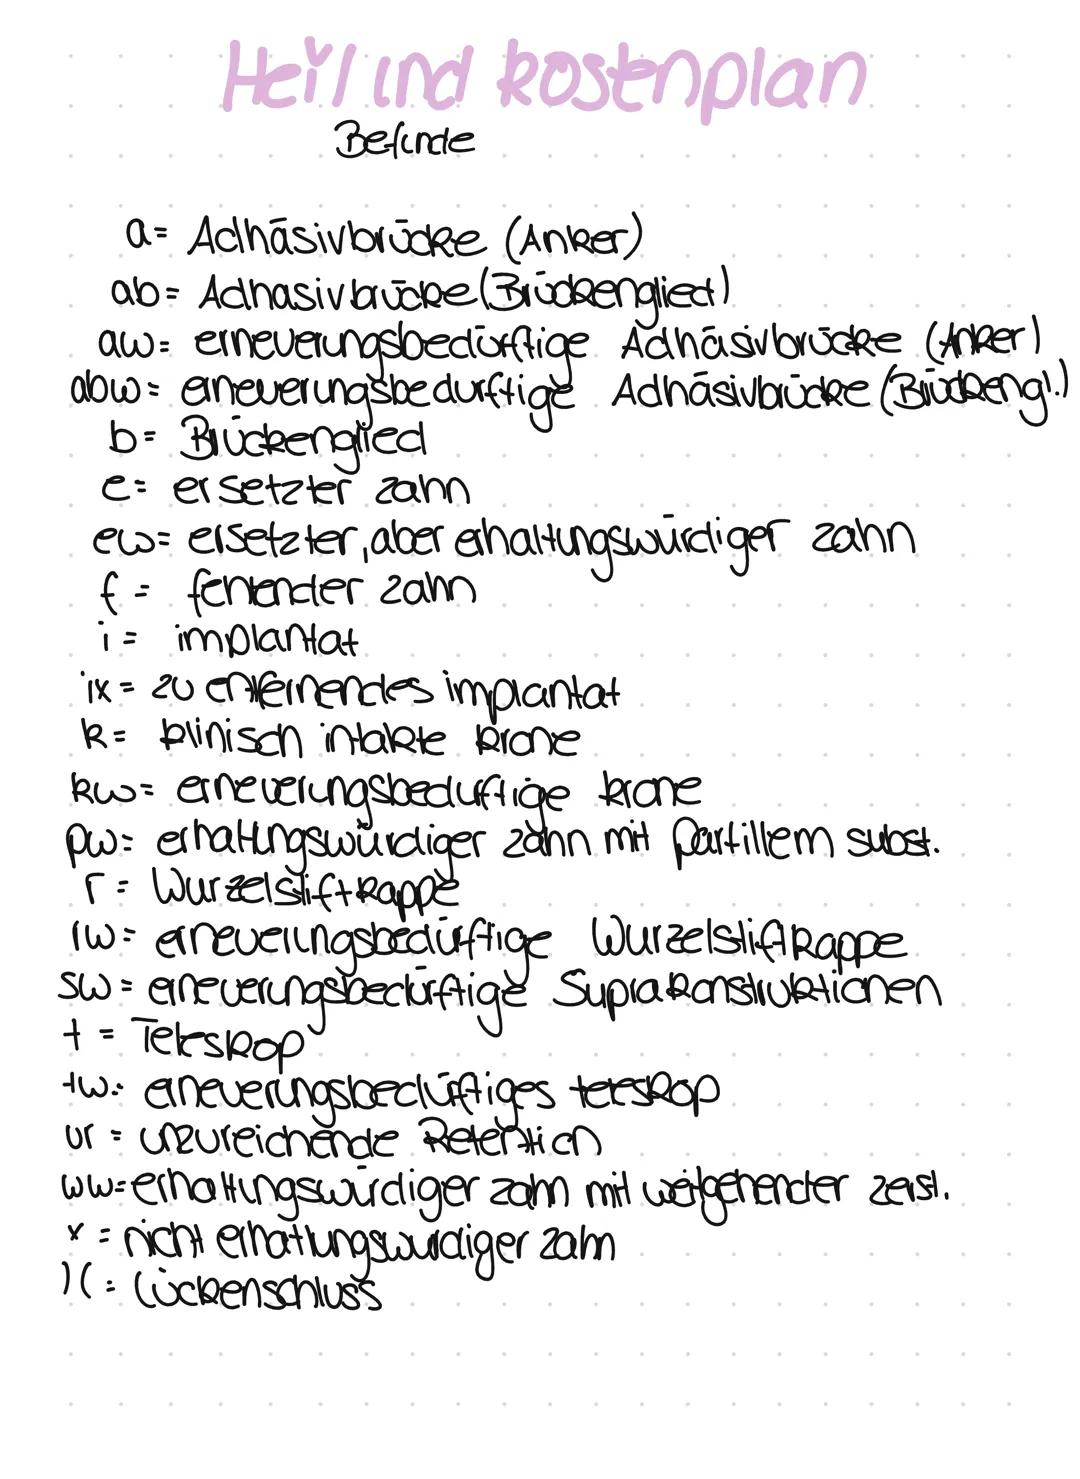 Heil und kostenplan
Befunde
a= Adhäsivbrücke (Anker)
ab= Adhasivbrücke (Brückenglied)
aw= erneuerungsbedürftige Adhäsivbrücke (Anker)
abw= erneuerungsbedurftige Adhäsivbrücke (Brückengl.)
b= Brückenglied
e= ersetzter zahn
ew= ersetzter, aber erhaltungswürdiger zahn
f = fehlender zahn
i = implantat
ix = zu entfernendes implantat
k= klinisch intakte krone
kw= erneuerungsbeduftige krone
pw= erhaltungswürdiger zahn mit partillem subst.
r = Wurzelstiftkappe
rw= erneuerungsbedürftige Wurzelstiftkappe
sw = erneuerungsbedürftige Suprakonstruktionen
t = Teleskop
tw= erneuerungsbedürftiges teleskop
ur = unzureichende Retention
ww= erhaltungswürdiger zahn mit weitgehender zerst.
x = nicht erhaltungswurdiger zahn
)( = Lückenschluss